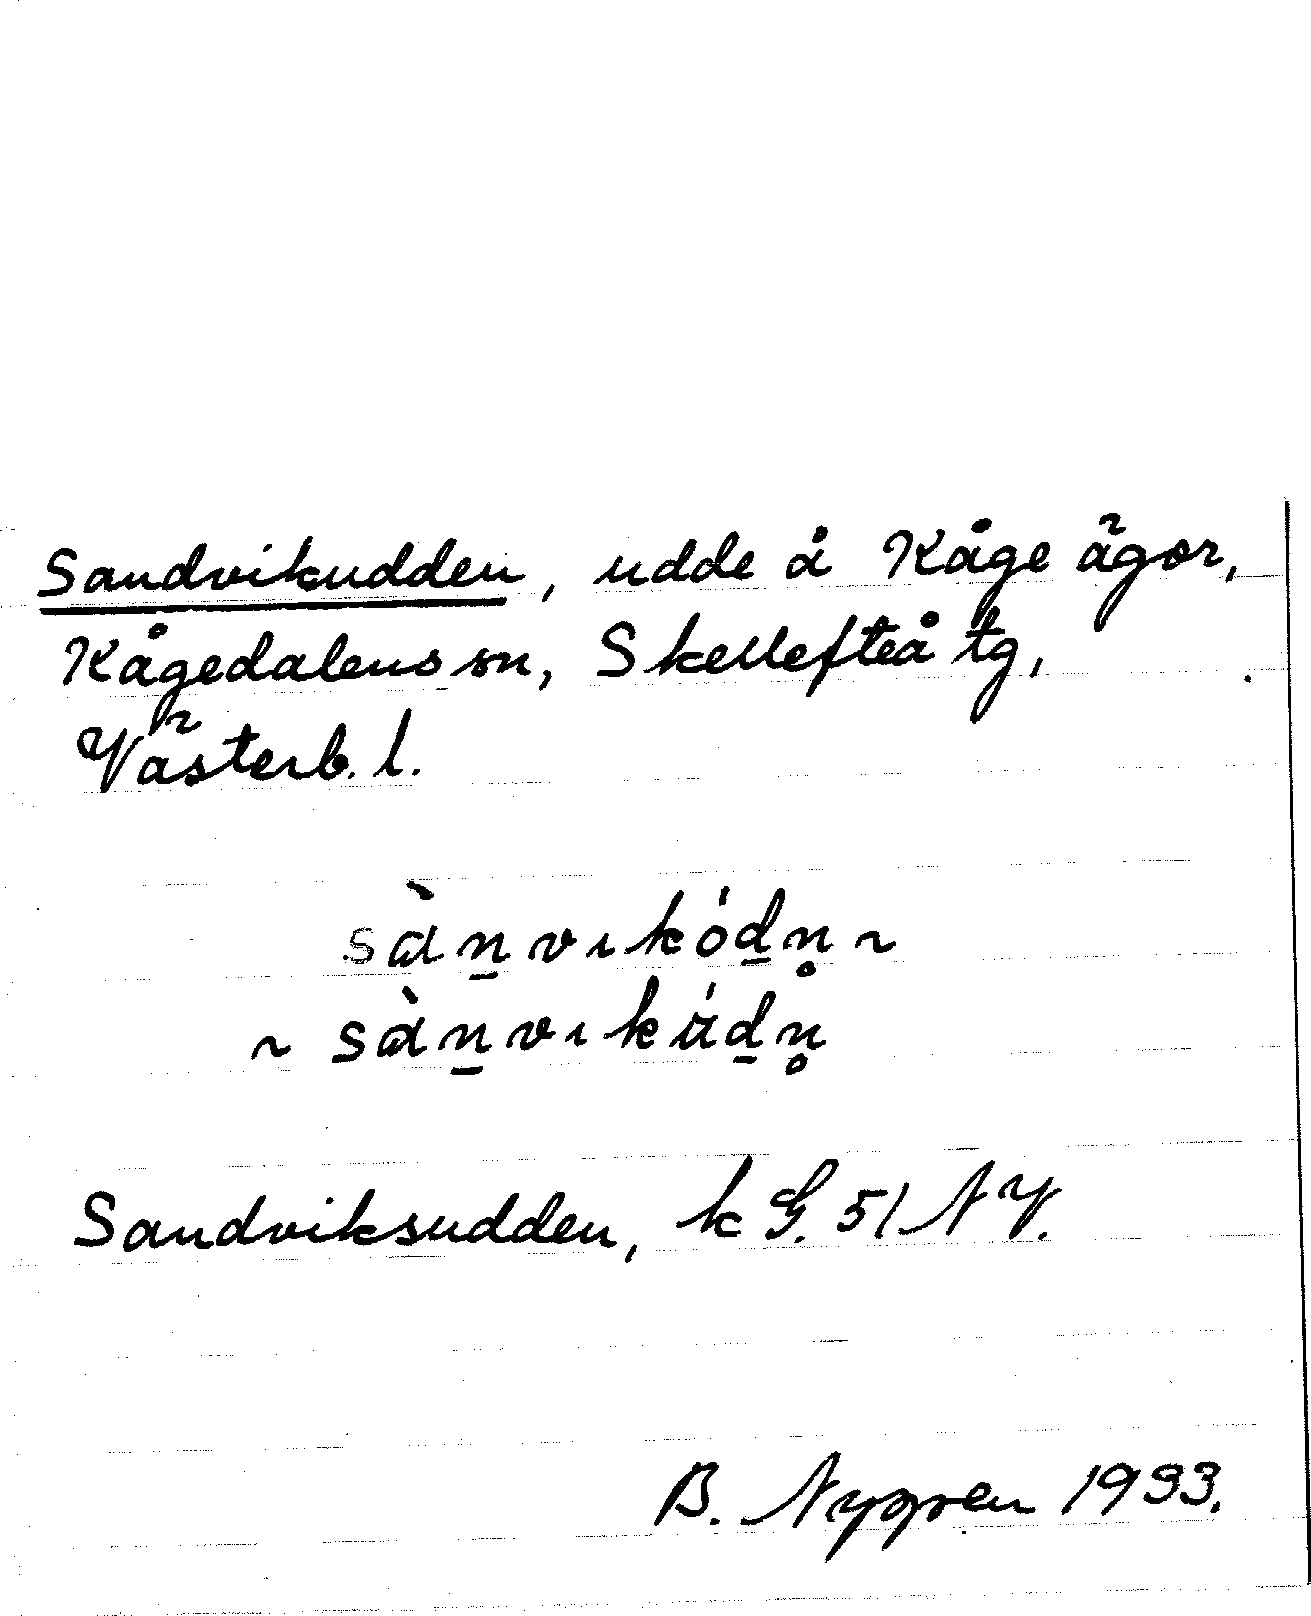 Sandvikudden, udde å Kåge ägor,
Kågedalens sn, Skellefteå tg,
Västerb. l.
sàn̲vıkód̲n̥ ~
~ sàn̲vıkúd̲n̥
Sandviksudden, k G. 51 NV.
B. Nygren 1933.